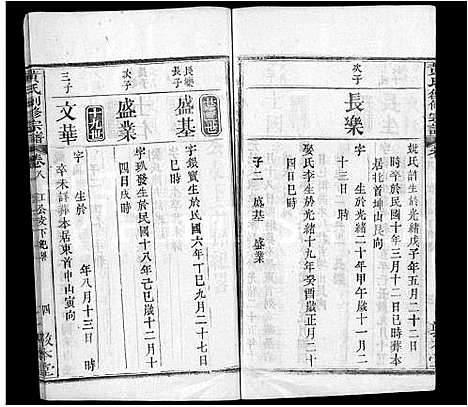 黃氏
次子
長樂
姚氏
生於光緒戊子年五月二十二日
時卒於民國十年三月十二日巳時葬本
居北首坤山艮向
字 生於光緒二十年甲午歲十一月二
十三日 時
娶氏李生於光緒十九年癸酉歲正月
四日巳時
子二 盛基 盛業
長樂
長子
盛基
字銀寶生於民國六年丁巳九月二十七日
時
次子
盛業
字 發生於民國十八年己巳歲十二月十
四日戌時
三子
文華
字 生於 年八月十三日 時
卒未詳葬本居東首申山寅向
黃氏 修宗譜
卷八
四
敦本堂